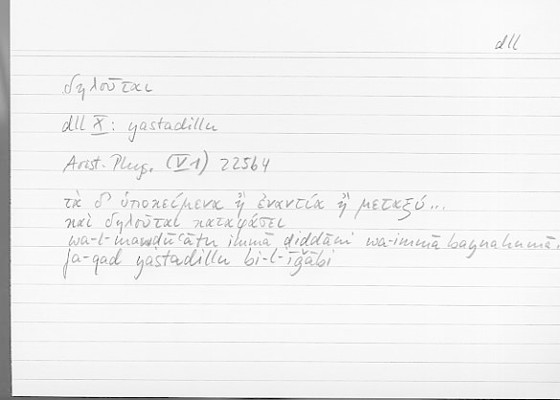 dll
δηλοῦται
dll X: yastadillu
Arist. Phys. (V 1) 225b4
τὰ δ' ὑποκείμενα ἢ ἐναντία ἢ μεταξύ...
καὶ δηλοῦται καταφάσει
wa-l-mawḍūʿātu immā ḍiddāni wa-immā baynahumā.
fa-qad yastadillu bi-l-īǧābi